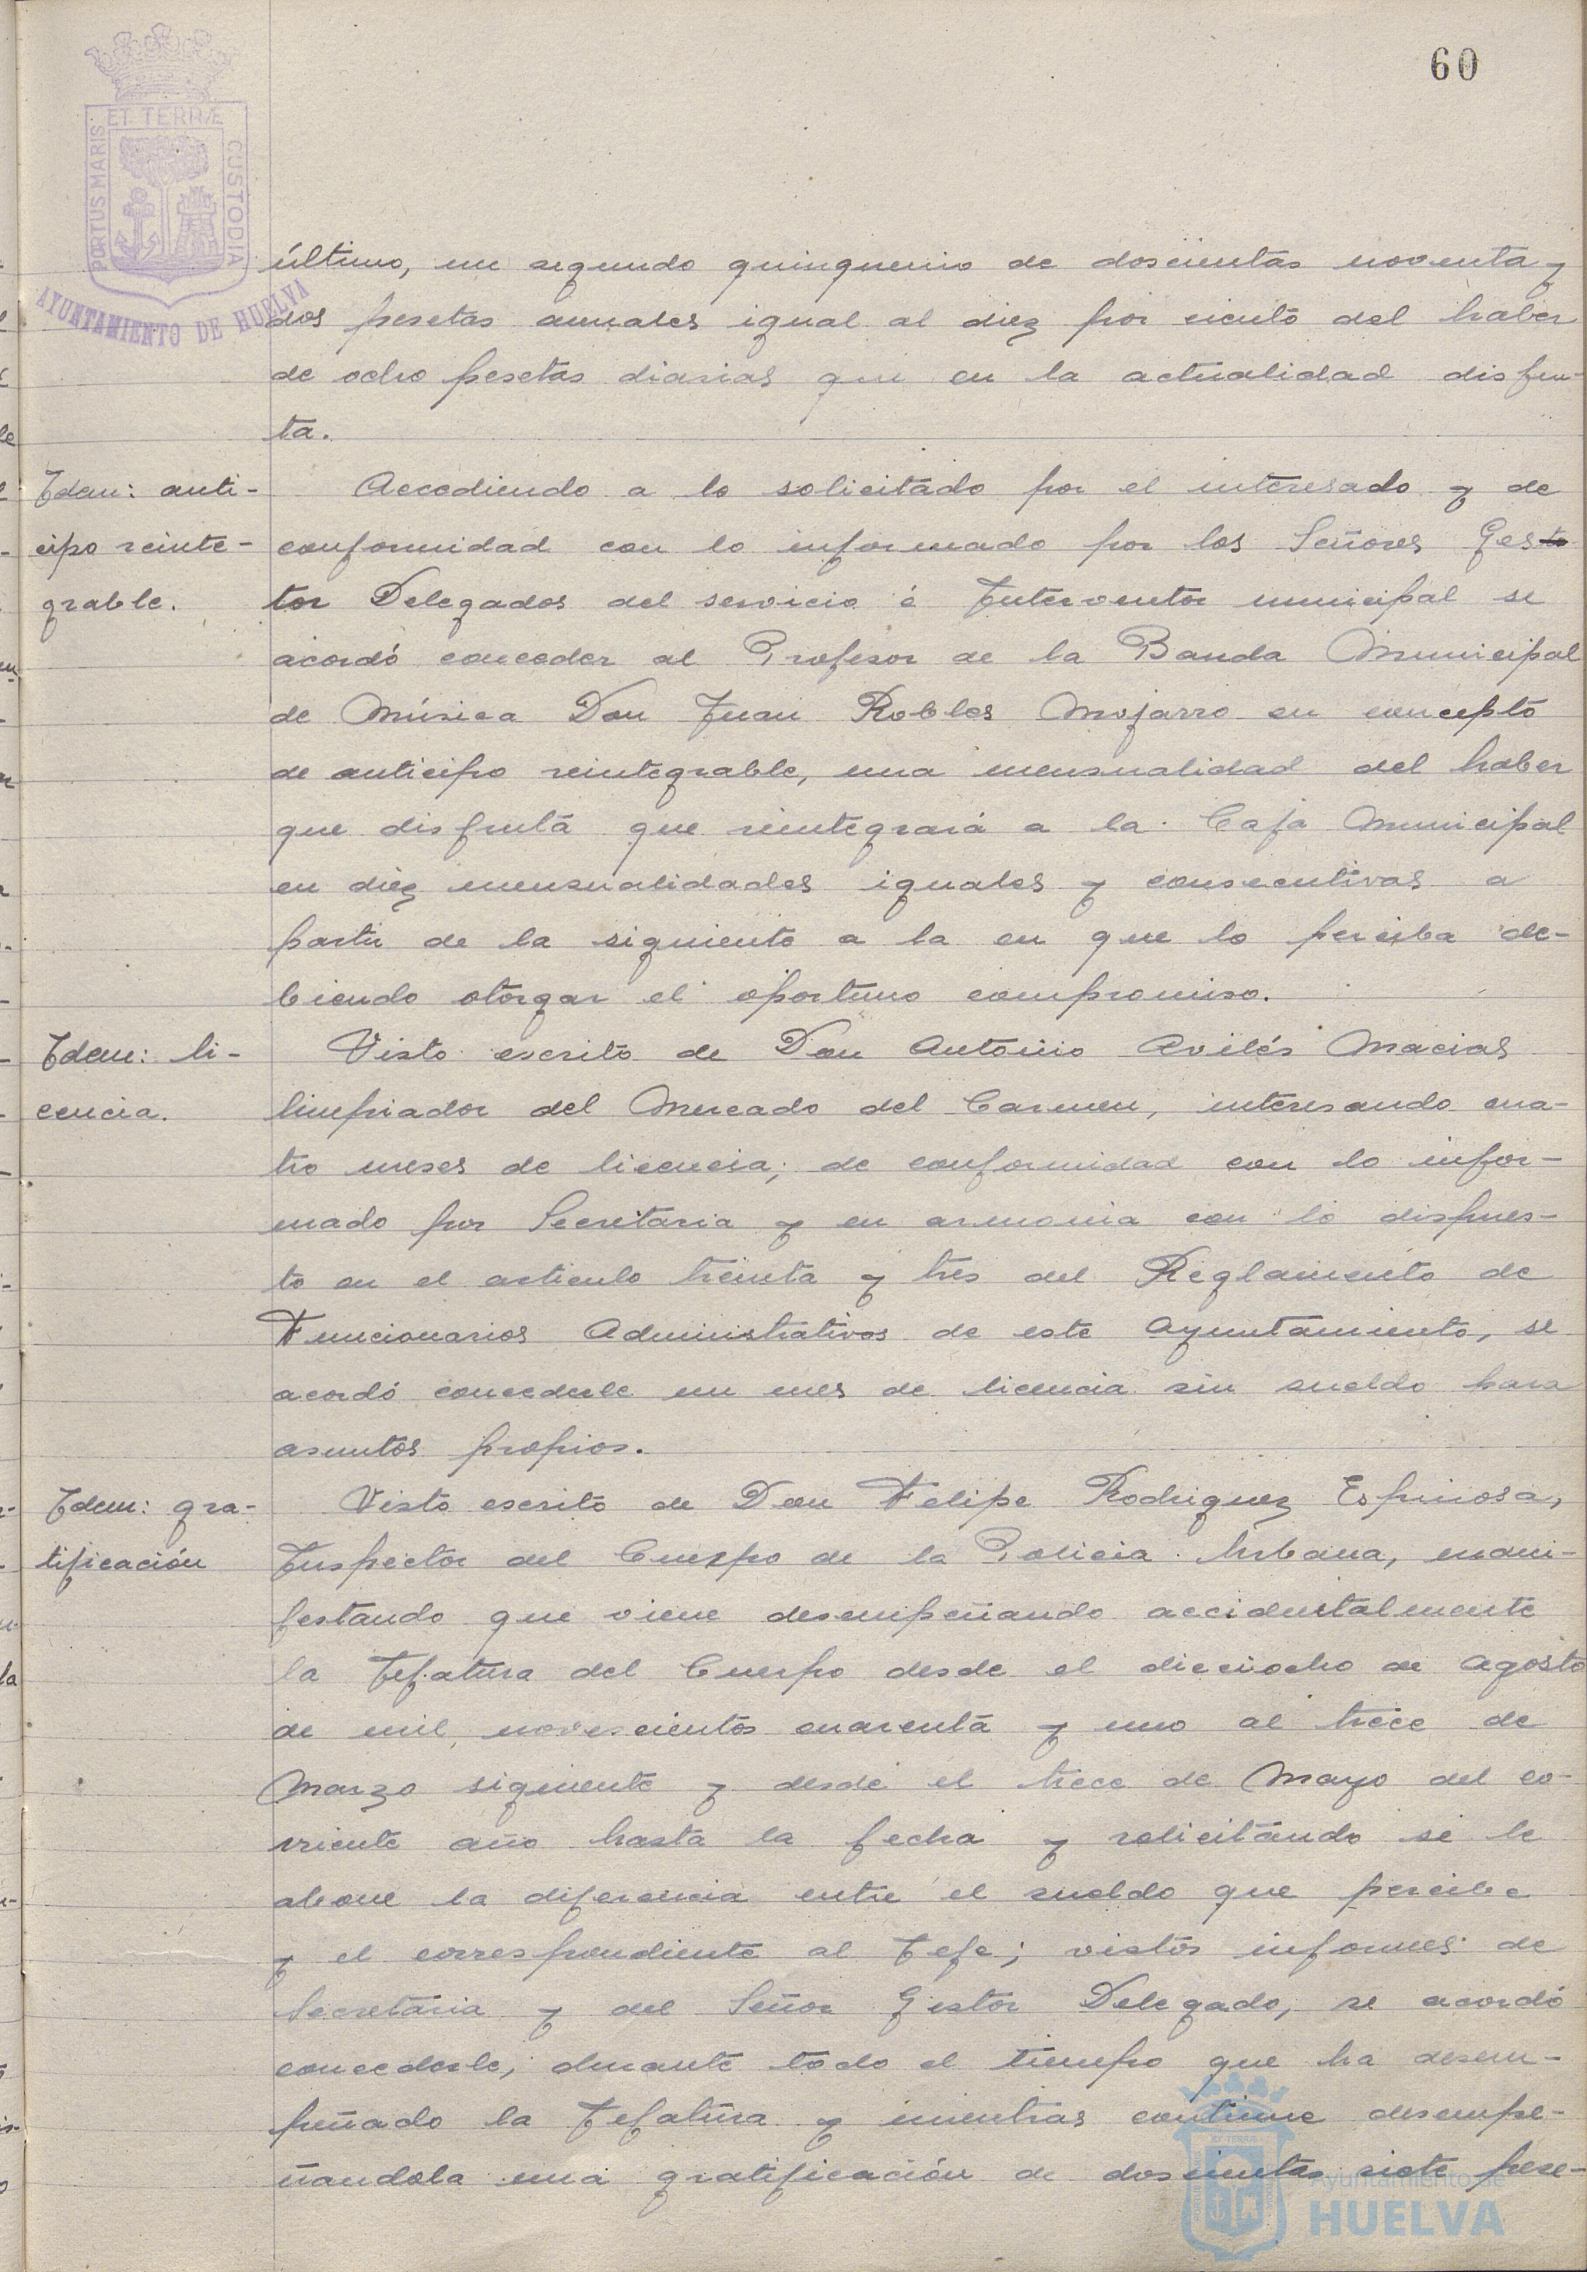 60
ET TERRÆ
PORTUS MARIS
CUSTODIA
AYUNTAMIENTO DE HUELVA
último, un segundo quinquenio de doscientas noventa y
dos pesetas anuales igual al diez por ciento del haber
de ocho pesetas diarias que en la actualidad disfru-
ta.
Idem: anti-
cipo reinte-
grable.
Accediendo a lo solicitado por el interesado y de
conformidad con lo informado por los Señores Gesto
tor Delegados del servicio é Interventor municipal se
acordó conceder al Profesor de la Banda Municipal
de Música Don Juan Robles Mojarro en concepto
de anticipo reintegrable, una mensualidad del haber
que disfruta que reintegrará a la Caja Municipal
en diez mensualidades iguales y consecutivas a
partir de la siguiente a la en que lo perciba de-
biendo otorgar el oportuno compromiso.
Idem: li-
cencia.
Visto escrito de Don Antonio Avilés Macias
limpiador del Mercado del Carmen, interesando cua-
tro meses de licencia; de conformidad con lo infor-
mado por Secretaria y en armonia con lo dispues-
to en el articulo treinta y tres del Reglamento de
Funcionarios Administrativos de este Ayuntamiento, se
acordó concederle un mes de licencia sin sueldo para
asuntos propios.
Idem: gra-
tificación
Visto escrito de Don Felipe Rodriguez Espinosa,
Inspector del Cuerpo de la Policia Urbana, mani-
festando que viene desempeñando accidentalmente
la Jefatura del Cuerpo desde el dieciocho de Agosto
de mil novescientos cuarenta y uno al trece de
Marzo siguiente y desde el trece de Mayo del co-
rriente año hasta la fecha y solicitando se le
abone la diferencia entre el sueldo que percibe
y el correspondiente al Jefe; vistos informes de
Secretaria y del Señor Gestor Delegado, se acordó
concederle, durante todo el tiempo que ha desem-
peñado la Jefatura y mientras continue desempe-
ñandola una gratificación de doscientas siete pese-
Ayuntamiento de
HUELVA